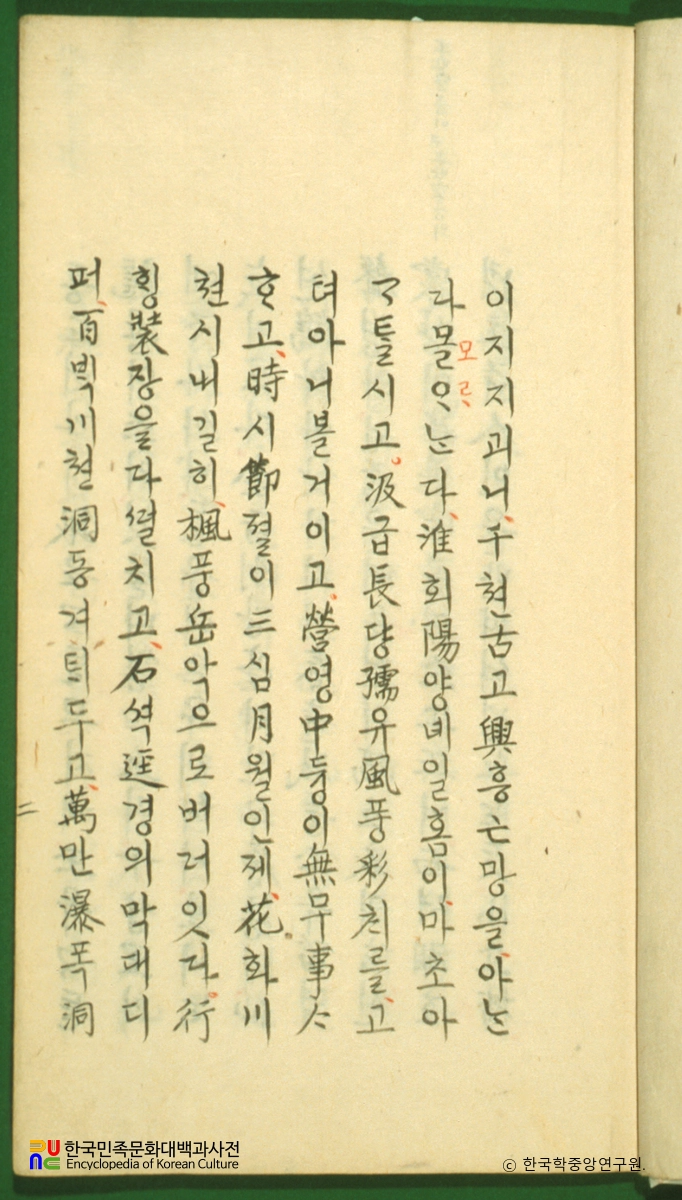 이지지괴니千쳔古고興흥亡망을아ᄂᆞᆫ
다몰ᄋᆞᄂᆞᆫ다淮회陽양녜일홈이마초아
모ᄅᆞ
ᄀᆞ틀시고汲급長댱孺유風풍彩ᄎᆡ를고
텨아니볼거이고營영中듕이無무事ᄉᆞ
ᄒᆞ고時시節졀이三심月월인제花화川
쳔시내길히楓풍岳악으로버더잇다行
횡裝장을다셜치고石셕逕경의막대디
퍼百ᄇᆡᆨ川쳔洞동겨ᄐᆡ두고萬만瀑폭洞
二
한국민족문화대백과사전
Encyclopedia of Korean Culture
ⓒ 한국학중앙연구원.